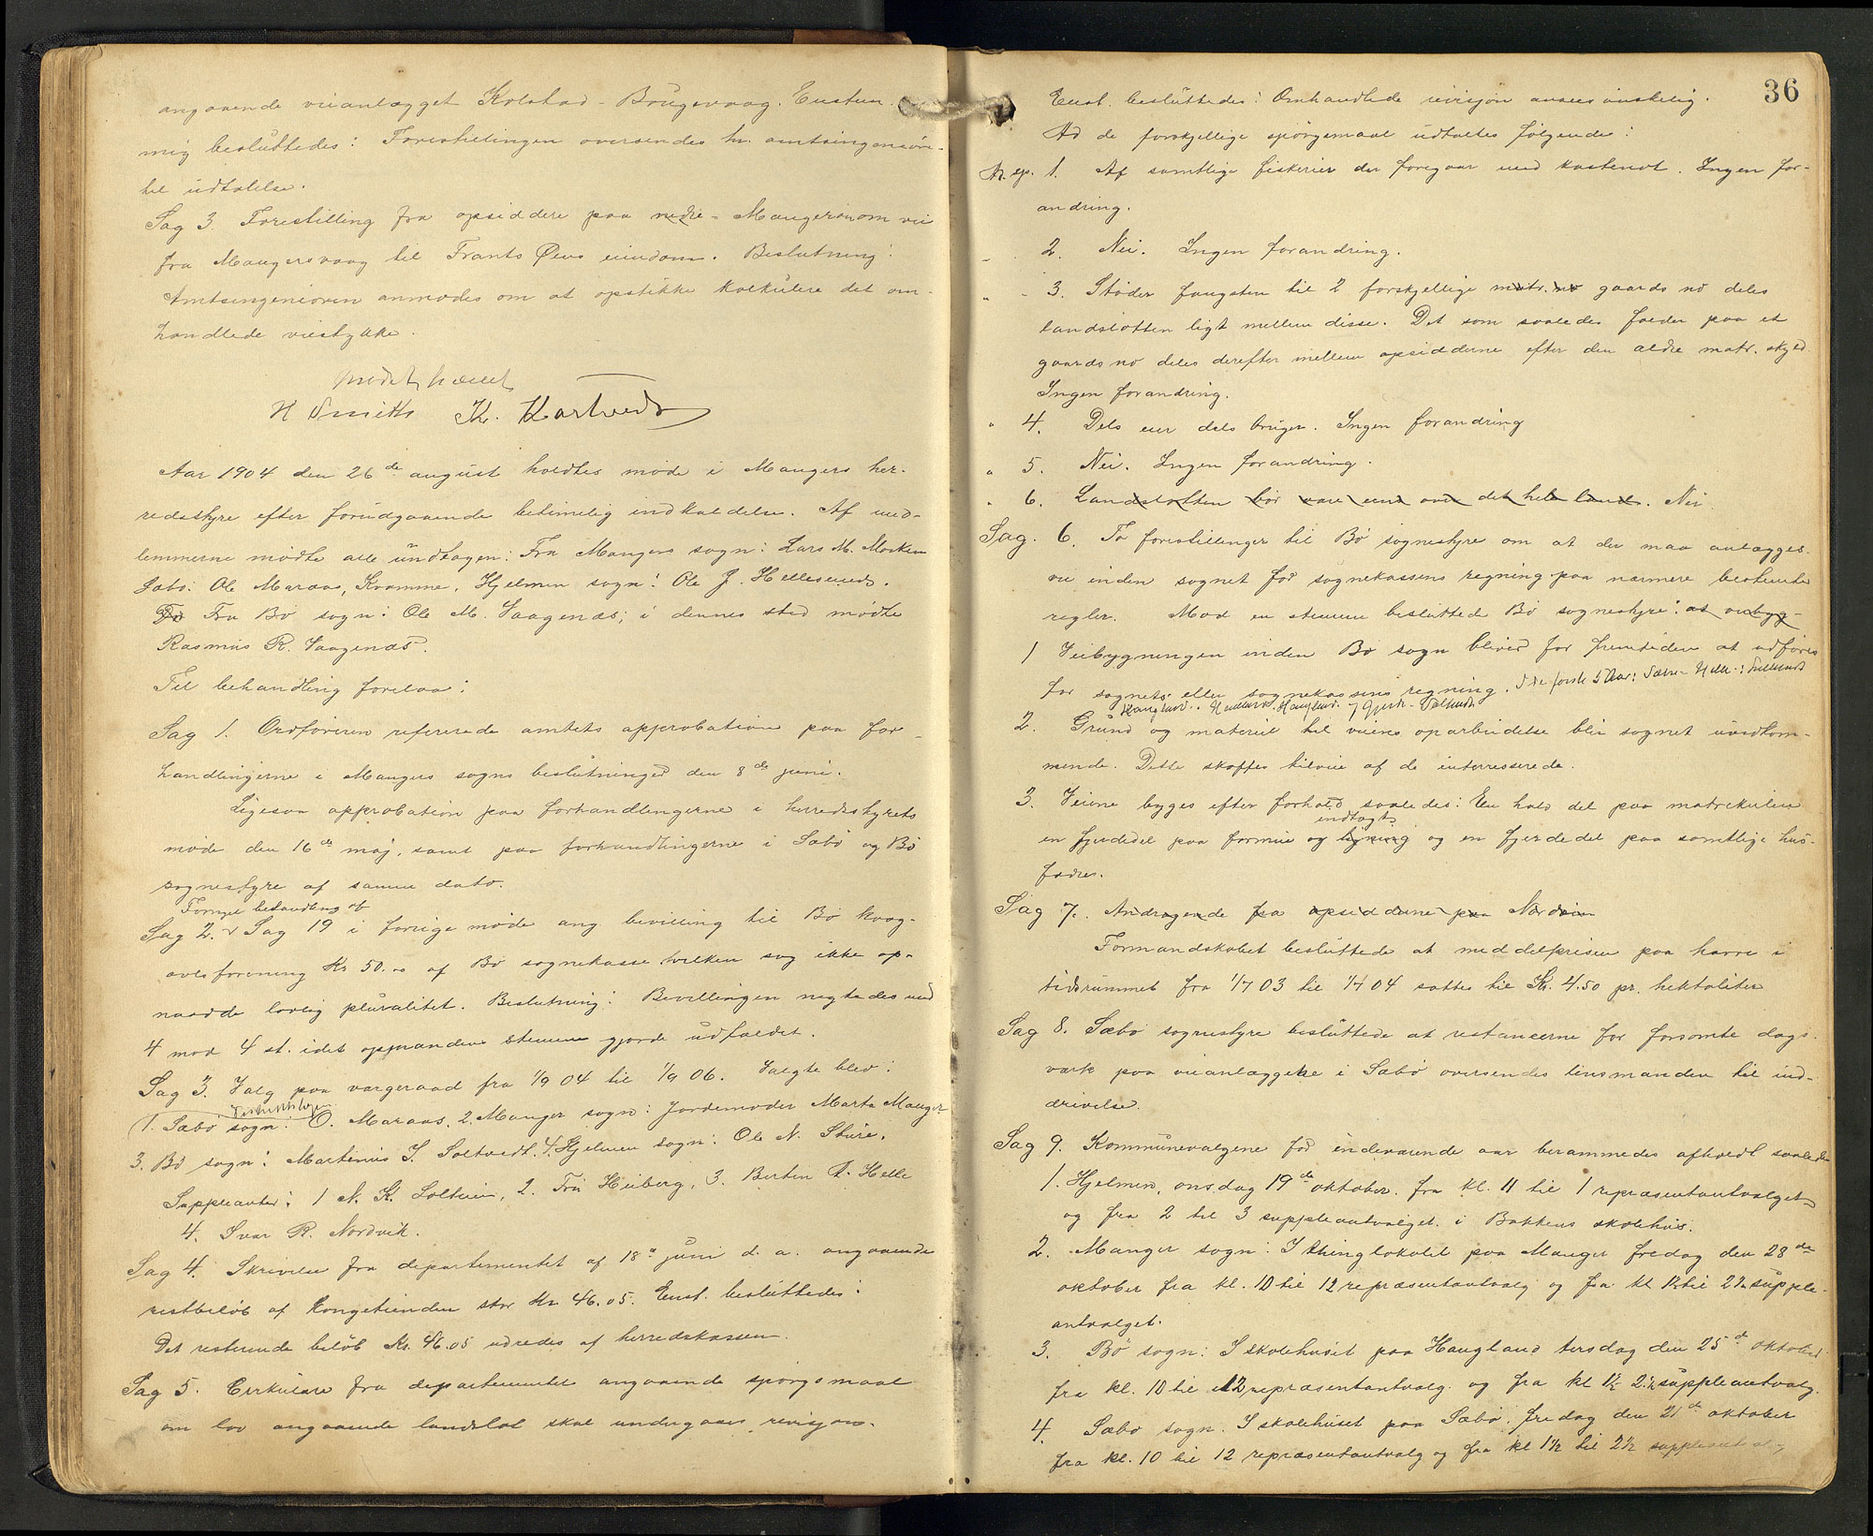 angaaende veianlægget Kolstad - Bøugevaag. Enstem-
mig besluttedes: Forestillingen oversendes hr. amtsingeniøren
til udtalelse.
Sag 3. Forestilling fra opsiddere paa nedre - Mangerøen om vei
fra Mangersvaag til Frants Øens eiendom. Beslutning:
Amtsingeniøren anmodes om at opstikke kalkulere det om-
handlede veistykke.
Mødet hævet
H Smith K. Kartveds
Aar 1904 den 26de august holdtes møde i Mangers her-
redsstyre efter forudgaaende betimelig indkaldelse. Af med-
lemmerne mødte alle undtagen: Fra Mangers sogn: Lars M. Morken
Sæbø: Ole Maraas, Kvamme, Hjelmen sogn: Ole J. Hellesund.
Fra Bø sogn: Ole M. Vaagenæs; i dennes sted mødte
Rasmus R. Vaagenæs.
Til behandling forelaa:
Sag 1. Ordføreren refererede amtets approbation paa for-
handlingerne i Mangers sogns beslutninger den 8de juni.
Ligesaa approbation paa forhandlingerne i herredsstyrets
møde den 16de maj, samt paa forhandlingerne i Sæbø og Bø
sognestyre af samme dato.
Fornyet behandling af
Sag 2. Sag 19 i forrige møde ang bevilling til Bø kvæg-
avlsforening Kr 50.00 af Bø sognekasse hvilken sag ikke op-
naadde lovlig pluralitet. Beslutning: Bevillingen negtedes med
4 mod 4 st. idet opmandens stemme gjorde udfaldet.
Sag 3. Valg paa vergeraad fra 1/9 04 til 1/9 06. Valgte blev:
1. Sæbø sogn: O. Maraas, 2. Manger sogn: Jordemoder Marta Manger
3. Bø sogn: Martinus J. Soltvedt. 4. Hjelmen sogn: Ole N. Sture.
Suppleanter: 1 N. K. Soltveim, 2. Fru Heiberg, 3. Berten A. Helle
4. Ivar R. Nordvik.
Sag 4. Skrivelse fra departementet af 18de juni d. a. angaaende
restbeløb af kongetienden stor Kr 46.05. Enst. besluttedes:
Det resterende beløb Kr. 46.05 udredes af herredskassen.
Sag 5. Cirkulære fra departementet angaaende spørgsmaal
om lov angaaende landslot skal undergaaes revisjon.
36
Enst. besluttedes: Omhandlede revisjon ansees ønskelig.
Ad de forskjellige spørgsmaal udtaltes følgende:
Nr. sp. 1. Af samtlige fiskerier der foregaar med kastenot. Ingen for-
andring.
" 2. Nei. Ingen forandring.
" 3. Støder fangsten til 2 forskjellige matr. no gaards no deles
landslotten ligt mellem disse. Det som saaledes falder paa et
gaards no deles derefter mellem opsidderne efter den ældre matr. skyld
Ingen forandring.
" 4. Dels eier dels bruger. Ingen forandring
" 5. Nei. Ingen forandring.
" 6. Landslotten bør være eens over det hele land. Nei
Sag. 6. To forestillinger til Bø sognestyre om at der maa anlægges
vei inden sognet for sognekassens regning paa nærmere bestemte
regler. Mod en stemme besluttede Bø sognestyre: at veibyg-
1 Veibygningen inden Bø sogn bliver for fremtiden at udføre
for sognets eller sognekassens regning. I de første 5 Aar:
2. Grund og materiel til veiens oparbeidelse blir sognet uvedkom-
mende. Dette skaffes tilveie af de interresserede.
3. Veiene bygges efter forhold saaledes: En halv del paa matrikulen
indtægt
en fjerdedel paa formue og ligning og en fjerdedel paa samtlige hus-
fædre.
Sag 7. Andragende fra opsidderne paa Nordøen
Formandskabet besluttede at middelprisen paa havre i
tidsrummet fra 1/7 03 til 1/7 04 sattes til Kr. 4.50 pr. hektoliter
Sag 8. Sæbø sognestyre besluttede at restancerne for forsømte dags-
værk paa veianlæggene i Sæbø oversendes lensmanden til ind-
drivelse.
Sag 9. Kommunevalgene for indeværende aar berammedes afholdt saaledes
1. Hjelmen, onsdag 19de oktober, fra kl. 11 til 1 repræsentantvalget
og fra 2 til 3 suppleantvalget i Bakkens skolehus.
2. Manger sogn: I thinglokalet paa Manger fredag den 28de
oktober fra kl. 10 til 12 repræsentantvalg og fra kl 1½ til 2½ supple-
antvalget.
3. Bø sogn: I skolehuset paa Haugland tirsdag den 25de oktober
fra kl. 10 til 12 repræsentantvalg og fra kl 1½ 2½ suppleantvalg.
4. Sæbø sogn. I skolehuset paa Sæbø, fredag den 21de oktober
fra kl. 10 til 12 repræsentantvalg og fra kl 1½ til 2½ suppleantvalg